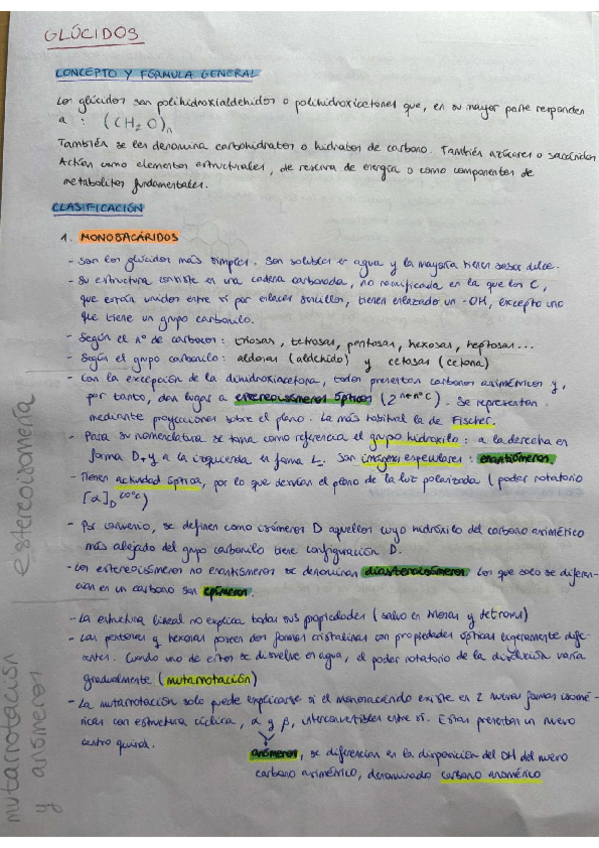 GLÚCIDOS
CONCEPTO Y FÓRMULA GENERAL
Los glúcidos son polihidroxialdehídos o polihidroxicetonas que, en su mayor parte responden
a : (CH₂O)n
También se les denomina carbohidratos o hidratos de carbono. También azúcares o sacáridos
Actúan como elementos estructurales, de reserva de energía o como componentes de
metabolitos fundamentales.
CLASIFICACIÓN
1. MONOSACÁRIDOS
- Son los glúcidos más simples. Son solubles en agua y la mayoría tienen sabor dulce.
- Su estructura consiste en una cadena carbonada, no ramificada en la que los C,
que están unidos entre sí por enlaces sencillos, tienen enlazado un -OH, excepto uno
que tiene un grupo carbonilo.
- Según el nº de carbonos: triosas, tetrosas, pentosas, hexosas, heptosas...
- Según el grupo carbonilo: aldosas (aldehído) y cetosas (cetona)
- Con la excepción de la dihidroxiacetona, todos presentan carbonos asimétricos y,
por tanto, dan lugar a estereoisómeros ópticos (2^nº C). Se representan
mediante proyecciones sobre el plano. La más habitual la de Fischer.
- Para su nomenclatura se toma como referencia el grupo hidroxilo: a la derecha en
forma D, y a la izquierda en forma L. Son imágenes especulares: enantiómeros.
- Tienen actividad óptica, por lo que desvían el plano de la luz polarizada (poder rotatorio
[α]D 20ºC)
- Por convenio, se definen como isómeros D aquellos cuyo hidróxilo del carbono asimétrico
más alejado del grupo carbonilo tiene configuración D.
- Los estereoisómeros no enantiómeros se denominan diasteroisómeros. Los que solo se diferen-
cian en un carbono son epímeros.
- La estructura lineal no explica todas sus propiedades (salvo en triosas y tetrosas)
- Las pentosas y hexosas poseen dos formas cristalinas con propiedades ópticas ligeramente dife-
rentes. Cuando uno de estos se disuelve en agua, el poder rotatorio de la disolución varía
gradualmente (mutarrotación)
- La mutarrotación solo puede explicarse si el monosacárido existe en 2 nuevas formas isomé-
ricas con estructura cíclica, α y β, interconvertibles entre sí. Estas presentan un nuevo
centro quiral.
anómeros, se diferencian en la disposición del OH del nuevo
carbono asimétrico, denominado carbono anomérico
estereoisomería
mutarrotación
y anómeros